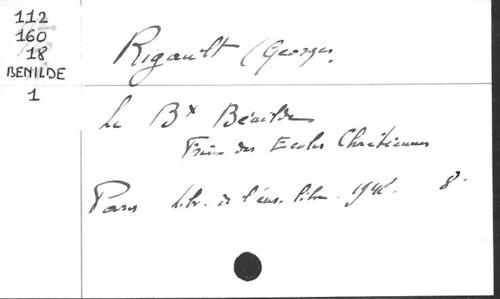 112
160
18
BENILDE
1
Rigault (Georges.
Le Bx Bénilde
Frère des Ecoles Chrétiennes
Paris Libr. de l'ens. libre. 8°.